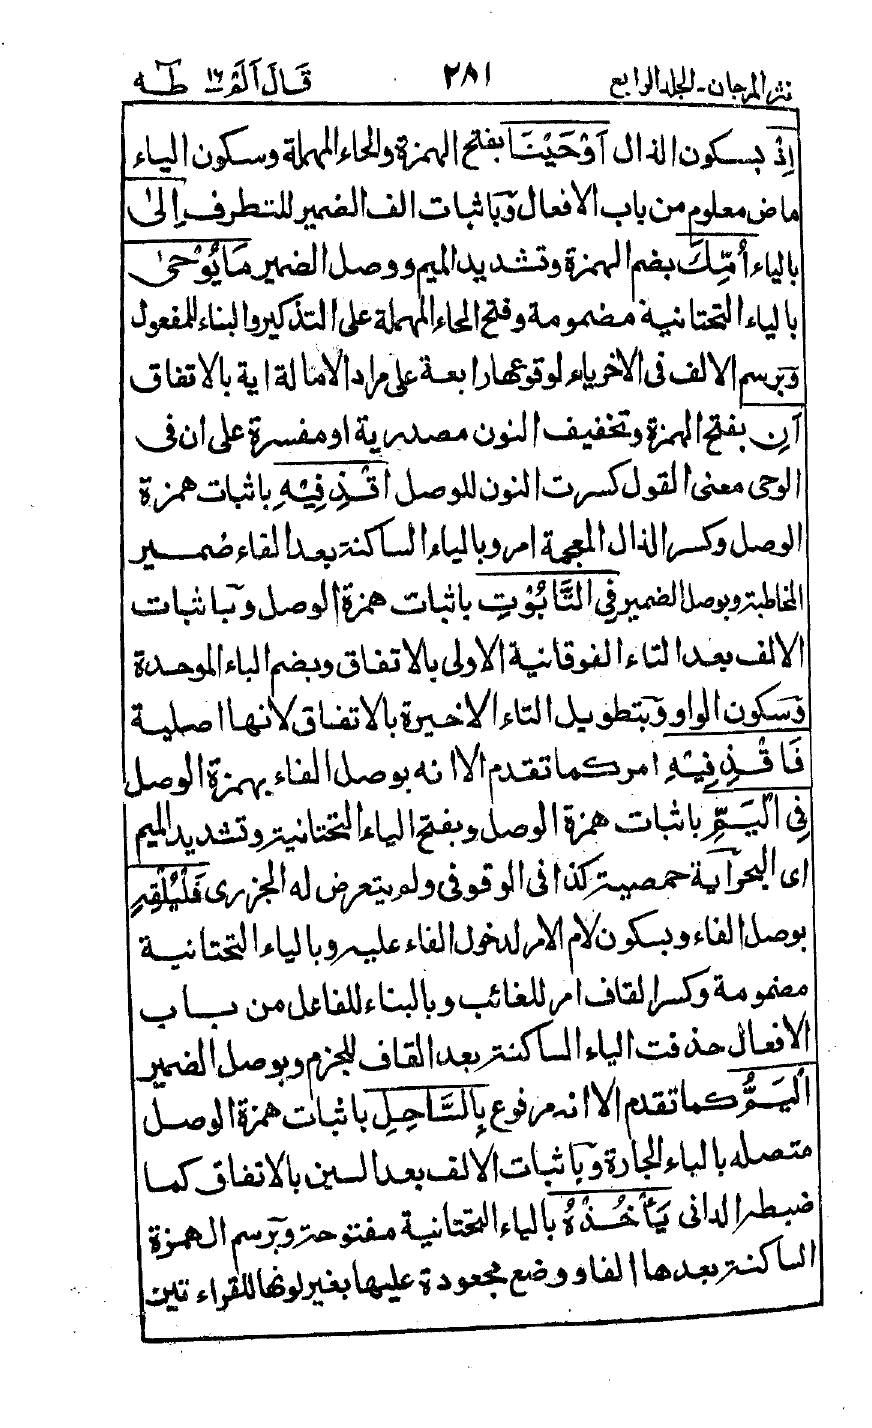 نثر المرجان - الجلد الرابع ٢٨١ قَالَ اَلَمْ ١٦ طٰهٰ
اِذْ بسكون الذال اَوْحَيْنَا بفتح الهمزة والحاء المهملة وسكون الياء
ماض معلوم من باب الافعال وبَاثبات الف الضمير للتطرف اِلىٰ
بالياء اُمِّكَ بضم الهمزة وتشديد الميم ووصل الضمير مَا يُوْحىٰ
بالياء التحتانية مضمومة وفتح الحاء المهملة على التذكير والبناء للمفعول
وَبرسم الالف فى الاخر ياء لوقوعها رابعة على مراد الامالة اية بالاتفاق
اَنِ بفتح الهمزة وتخفيف النون مصدرية او مفسرة على ان فى
الوحى معنى القول كسرت النون للوصل اقْذِ فِيْهِ باثبات همزة
الوصل وكسر الذال المعجمة امر وبالياء الساكنة بعد الفاء ضمير
المخاطبة وبوصل الضمير فِى التَّابُوْتِ باثبات همزة الوصل وبَاثبات
الالف بعد التاء الفوقانية الاولى بالاتفاق وبضم الباء الموحدة
وَسكون الواو وَبتطويل التاء الاخيرة بالاتفاق لانها اصلية
فَاقْذِ فِيْهِ امر كما تقدم الا انه بوصل الفاء بهمزة الوصل
فِى الْيَمِّ باثبات همزة الوصل وبفتح الياء التحتانية وتشديد الميم
اى البحر اٰية حمصية كذا فى الوقوفى ولم يتعرض له الجزرى فَلْيُلْقِهِ
بوصل الفاء وبسكون لام الامر لدخول الفاء عليه وبالياء التحتانية
مضمومة وكسر القاف امر للغائب وبالبناء للفاعل من باب
الافعال حذفت الياء الساكنة بعد القاف للجزم وبوصل الضمير
الْيَمُّ كما تقدم الا انه مرفوع بِالسَّاحِلِ باثبات همزة الوصل
متصله بالباء الجارة وبَاثبات الالف بعد السين بالاتفاق كما
ضبطه الدانى يَاْخُذْهُ بالياء التحتانية مفتوحة وبَرسم الهمزة
الساكنة بعدها الفا ووضع مجعودة عليها بغير لونها للقراءتين